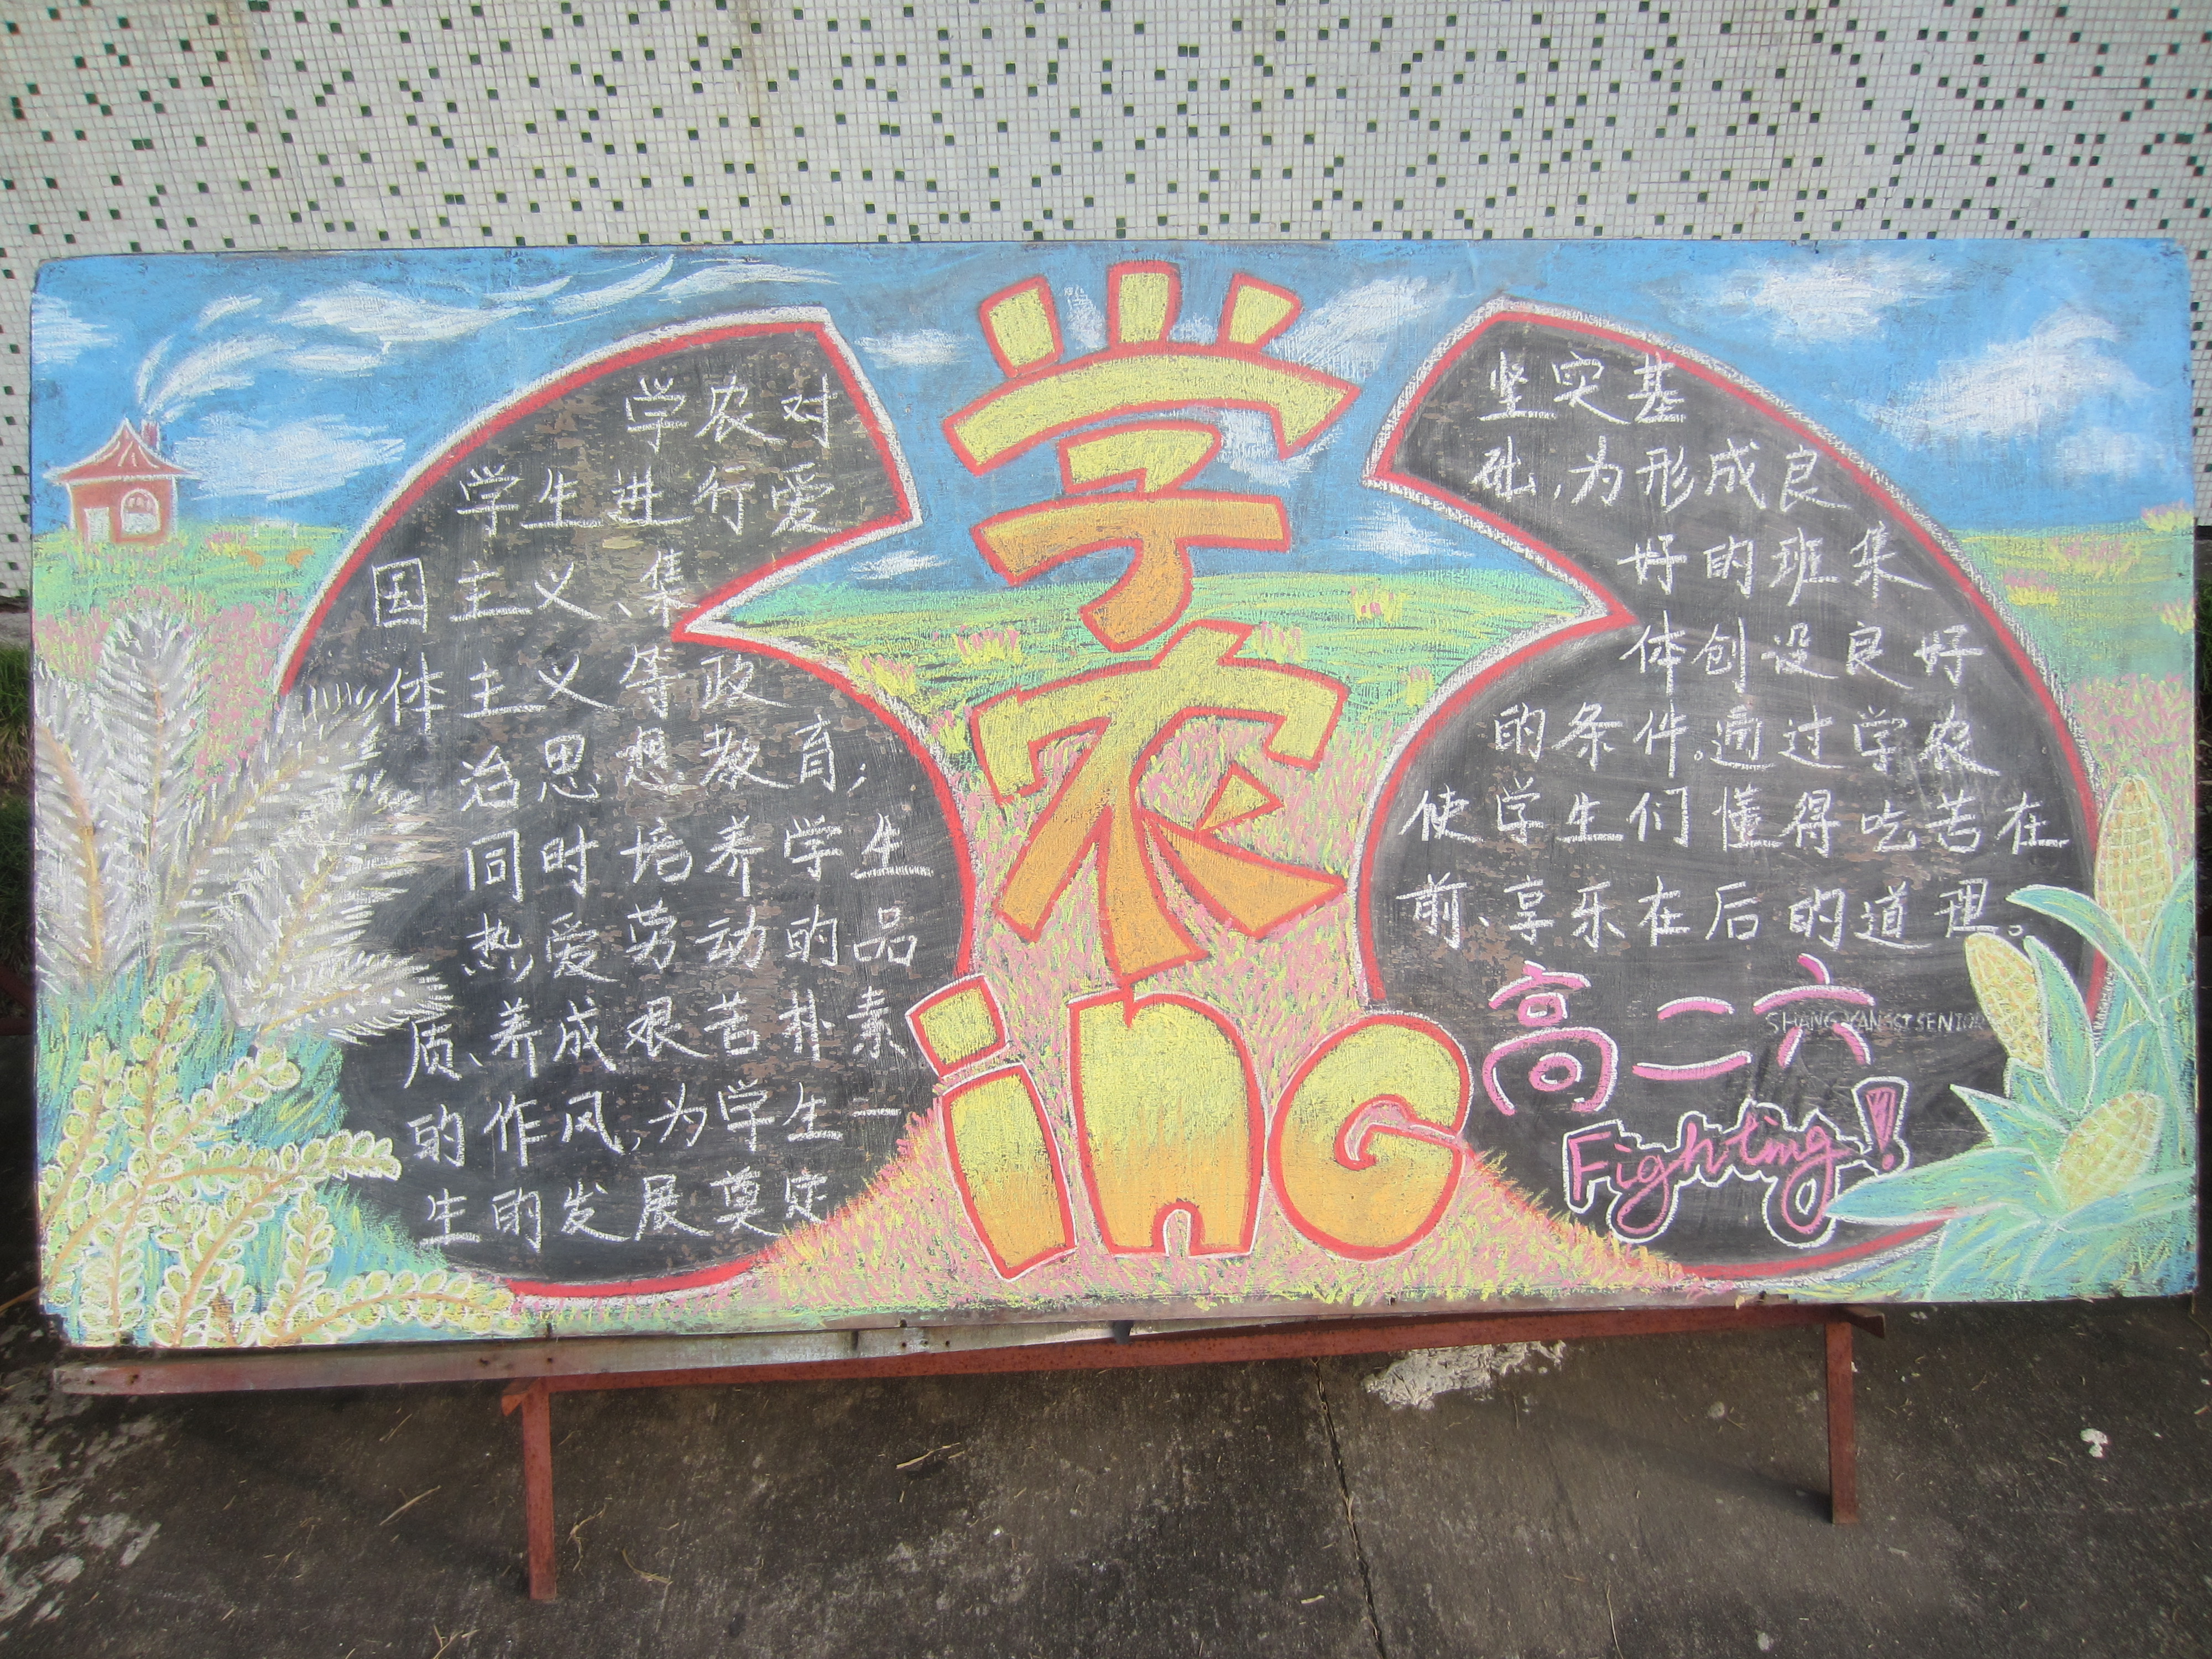 学农对
学生进行爱
国主义、集
体主义等政
治思想教育;
同时培养学生
热爱劳动的品
质、养成艰苦朴素
的作风,为学生一
生的发展奠定
学农
ing
坚实基
础,为形成良
好的班集
体创设良好
的条件。通过学农
使学生们懂得吃苦在
前、享乐在后的道理。
高二六
Fighting!